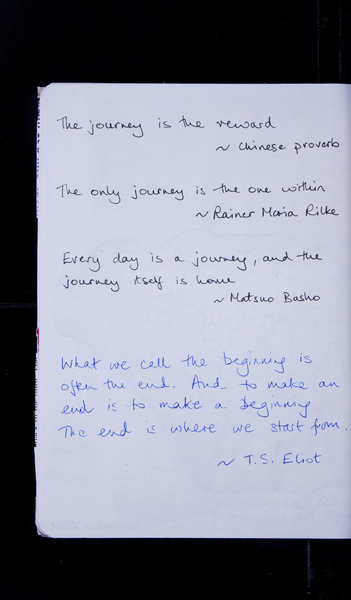 The journey is the reward
~ Chinese proverb
The only journey is the one within
~ Rainer Maria Rilke
Every day is a journey, and the
journey itself is home
~ Matsuo Basho
What we call the beginning is
often the end. And to make an
end is to make a beginning
The end is where we start from.
~ T.S. Eliot